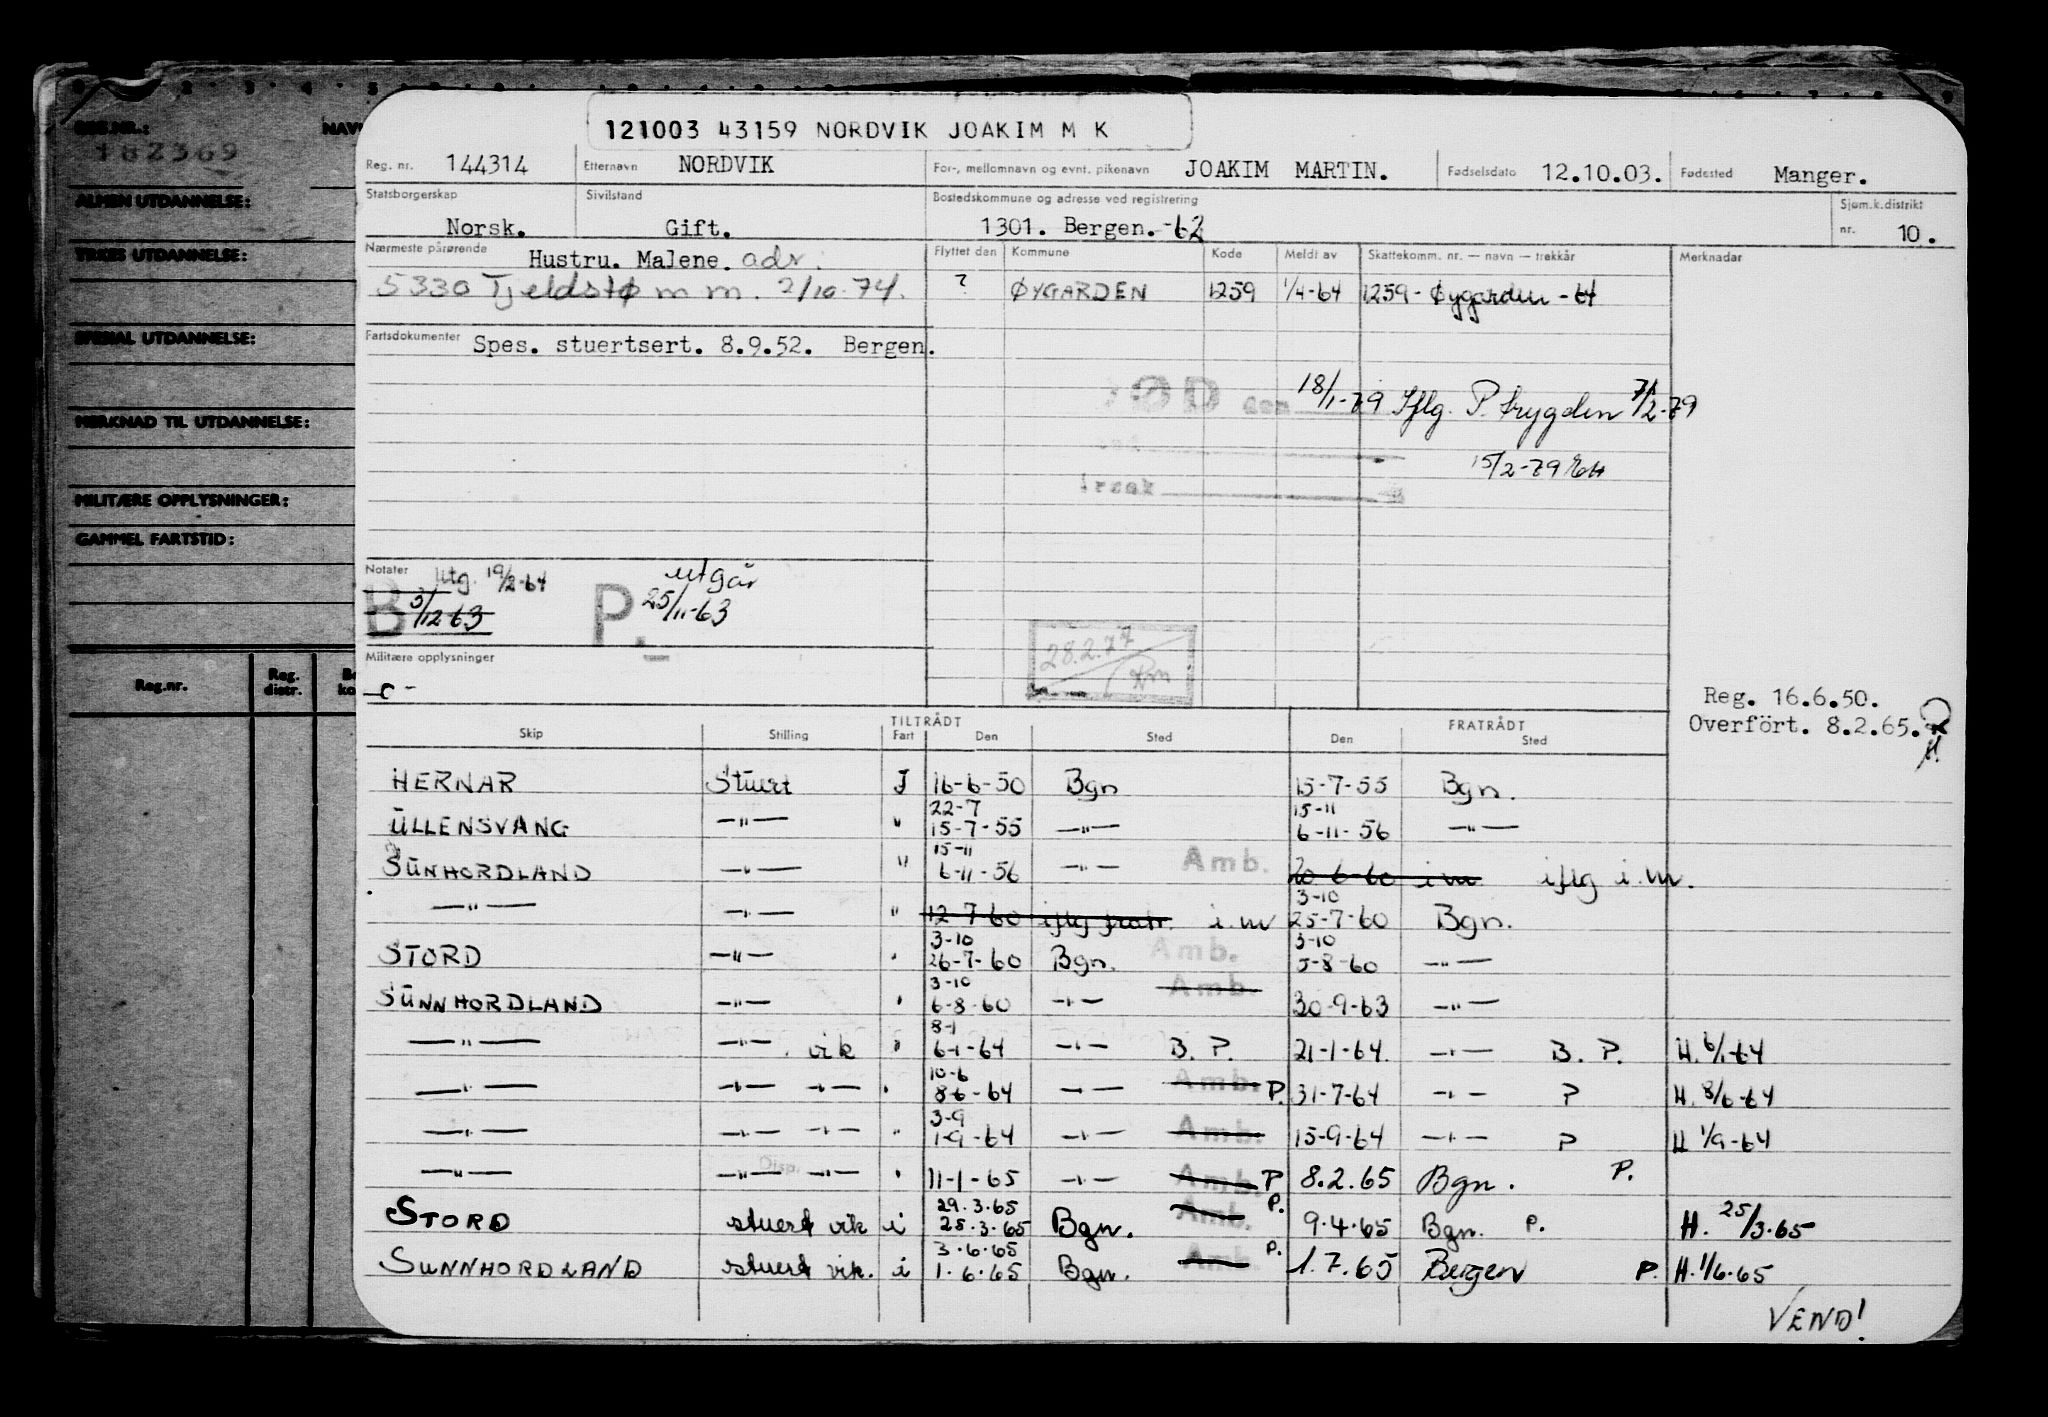 121003 43159 NORDVIK JOAKIM M K
Reg. nr. 144314 Etternavn NORDVIK For-, mellomnavn og evnt. pikenavn JOAKIM MARTIN. Fødselsdato 12.10.03. Fødested Manger.
Statsborgerskap Norsk. Sivilstand Gift. Bostedskommune og adresse ved registrering 1301. Bergen. -62 Sjøm.k.distrikt nr. 10.
Nærmeste pårørende Hustru. Malene. adr. Flyttet den Kommune Kode Meldt av Skattekomm. nr. — navn — trekkår Merknader
5330 Tjeldstø m m. 2/10-74. ? ØYGARDEN 1259 1/4-64 1259- Øygarden -64
Fartsdokumenter Spes. stuertsert. 8.9.52. Bergen.
DØD den 18/1-79 Iflg. P. trygden 7/2-79
15/2-79
årsak
Notater Utg. 19/2-64 utgår
B 3/12 63 P. 25/11-63
28.2.77
Militære opplysninger
- c -
Reg. 16.6.50.
Overført. 8.2.65.
TILTRÅDT FRATRÅDT
Skip Stilling Fart Den Sted Den Sted
HERNAR Stuert I 16-6-50 Bgn 15-7-55 Bgn.
22-7 15-11
ULLENSVANG —"— " 15-7-55 —"— 6-11-56 —"—
15-11
SUNHORDLAND —"— " 6-11-56 —"— Amb. 20-6-60 i.m iflg i.m.
3-10
—"— —"— " 12-7-60 iflg fratr. i.m 25-7-60 Bgn.
3-10 3-10
STORD —"— " 26-7-60 Bgn. Amb. 5-8-60 —"—
3-10
SUNNHORDLAND —"— " 6-8-60 —"— Amb. 30-9-63 —"—
8-1
—"— —"— vik " 6-1-64 —"— B. P. 21-1-64. —"— B. P. H. 6/1-64
10-6
—"— —"— —"— " 8-6-64 —"— Amb. P. 31-7-64 —"— P H. 8/6-64
3-9
—"— —"— —"— " 1-9-64 —"— Amb. 15-9-64 —"— P H 1/9-64
Disp.
—"— —"— —"— " 11-1-65 —"— Amb. P 8.2.65 Bgn. P.
29.3.65
STORD stuert vik i 25.3.65 Bgn. Amb. P. 9.4.65 Bgn. P. H. 25/3.65
3.6.65
SUNNHORDLAND stuert vik. i 1.6.65 Bgn. Amb P. 1.7.65 Bergen P. H. 1/6.65
VEND!
REG.NR.: NAV
182369
ALMEN UTDANNELSE:
YRKES UTDANNELSE:
SPESIAL UTDANNELSE:
MERKNAD TIL UTDANNELSE:
MILITÆRE OPPLYSNINGER:
GAMMEL FARTSTID:
Reg.nr. Reg. distr. Bo ko